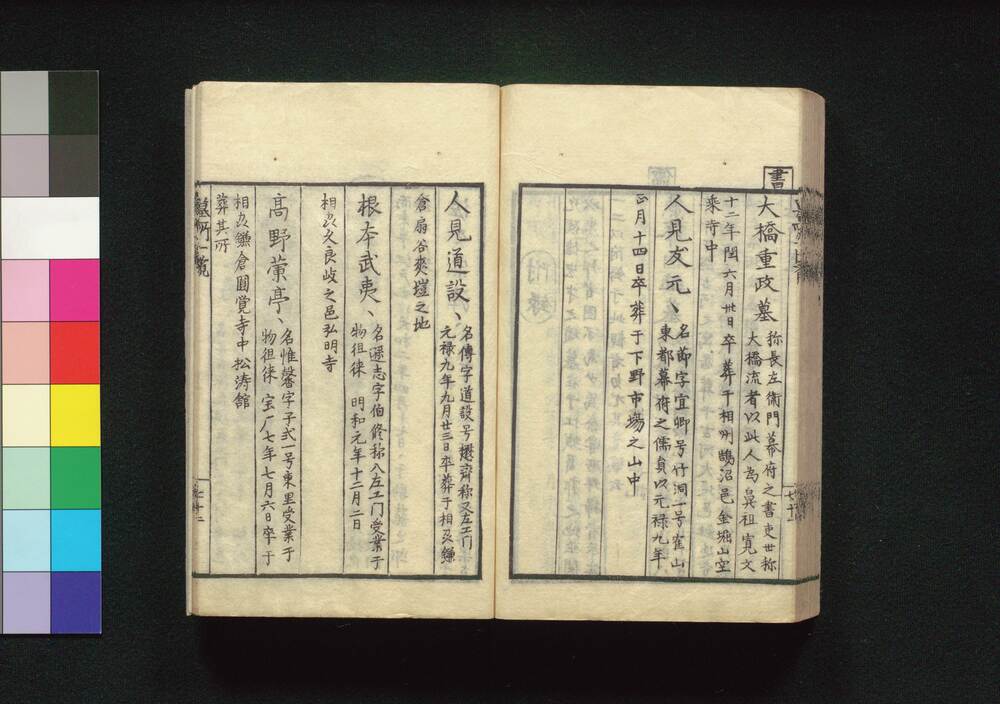 書
大橋重政墓 称長左衛門幕府之書吏世称
大橋流者以此人為鼻祖寛文
十二年閏六月卅日卒葬于相州鵠沼邑金堀山空
乗寺中
人見友元、 名節字宜卿号竹洞一号寉山
東都幕府之儒員以元禄九年
正月十四日卒葬于下野市場之山中
人見道設、 名傳字道設号懋齋称又左エ门
元禄九年九月廿三日卒葬于相刕鎌
倉扇谷
之地
根本武夷、 名遜志字伯修称八左エ门受業于
物徂徠 明和元年十二月二日
相刕久良岐之邑弘明寺
高野蘭亭、 名惟馨字子式一号東里受業于
物徂徠 宝厂七年七月六日卒于
相刕鎌倉圓覚寺中松涛館
葬其所
墓所一覧
七十二